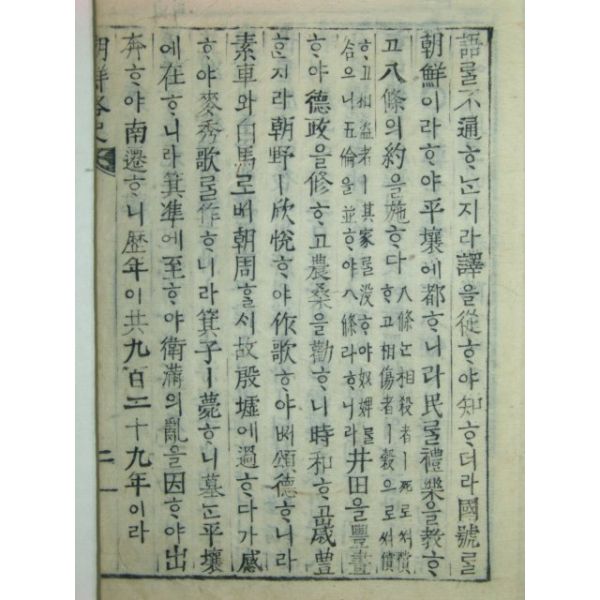 語ᄅᆞᆯ不通ᄒᆞᄂᆞᆫ지라譯을從ᄒᆞ야知ᄒᆞ더라國號ᄅᆞᆯ
朝鮮이라ᄒᆞ야平壤에都ᄒᆞ니라民ᄅᆞᆯ禮樂을敎ᄒᆞ
고八條의約을施ᄒᆞ다
八條ᄂᆞᆫ相殺者ㅣ死로써償
ᄒᆞ고相傷者ㅣ穀으로써償
ᄒᆞ고相盜者ㅣ其家ᄅᆞᆯ沒ᄒᆞ야奴婢ᄅᆞᆯ
合으니五倫을並ᄒᆞ야八條라ᄒᆞ니라
井田을畫
ᄒᆞ야德政을修ᄒᆞ고農桑을勸ᄒᆞ니時和ᄒᆞ고歲豊
ᄒᆞᆫ지라朝野ㅣ欣悅ᄒᆞ야作歌ᄒᆞ야ᄡᅥ頌德ᄒᆞ니라
素車와白馬로ᄡᅥ朝周ᄒᆞᆯ시故殷墟에過ᄒᆞ다가感
ᄒᆞ야麥秀歌ᄅᆞᆯ作ᄒᆞ니라箕子ㅣ薨ᄒᆞ니墓ᄂᆞᆫ平壤
에在ᄒᆞ니라箕準에至ᄒᆞ야衛滿의亂을因ᄒᆞ야出
奔ᄒᆞ야南遷ᄒᆞ니歷年이共九百二十九年이라
朝鮮略史
二